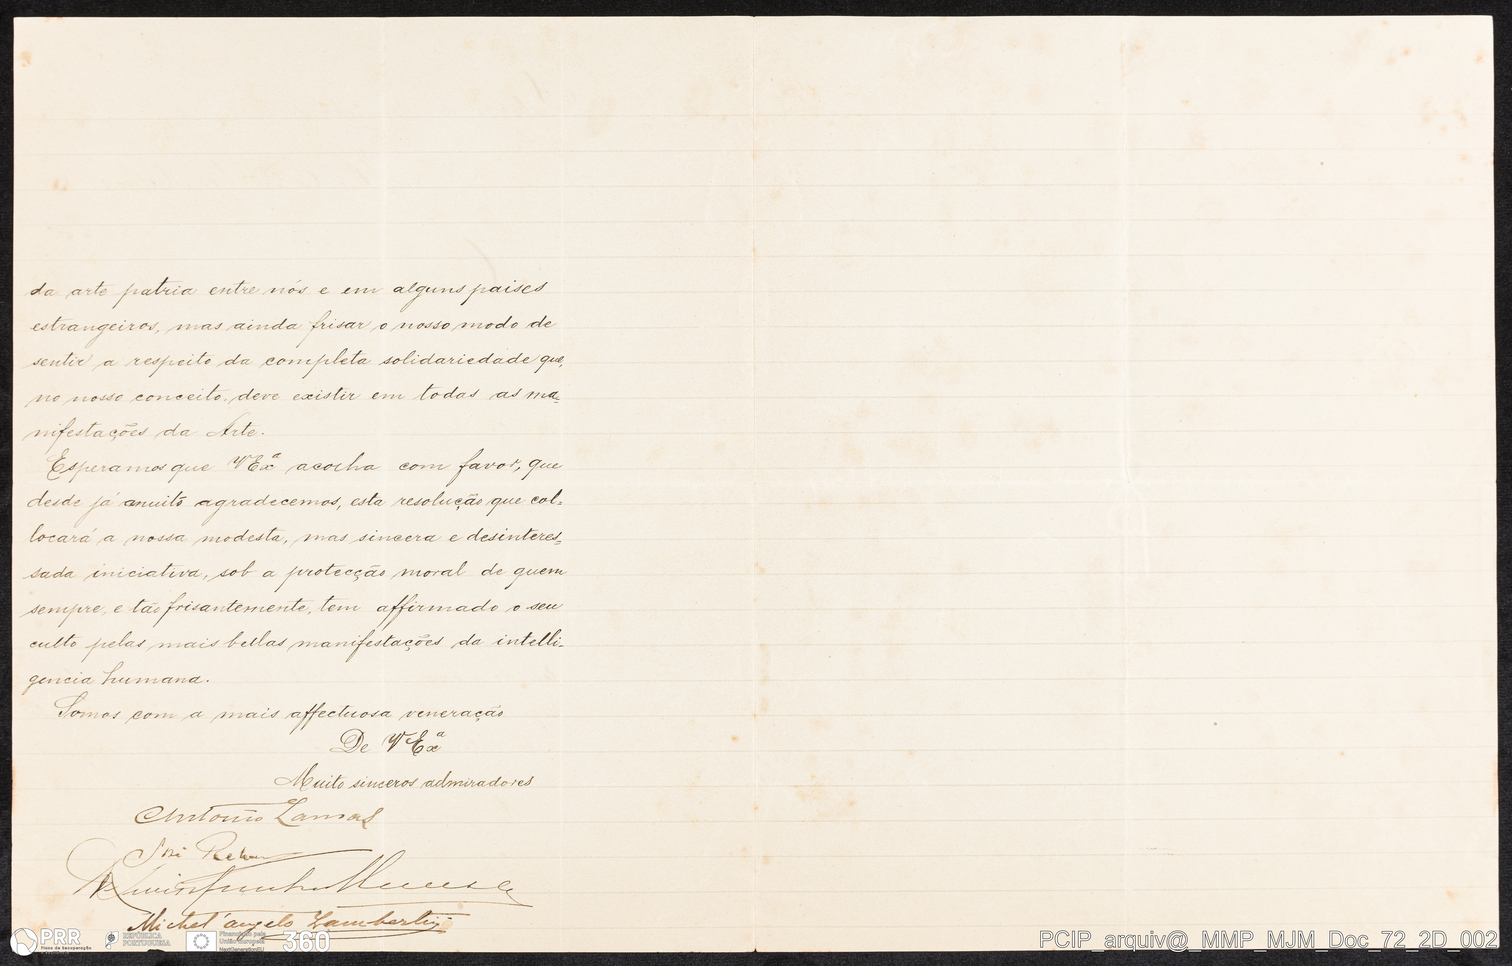 da arte patria entre nós e em alguns paises
estrangeiros, mas ainda frisar o nosso modo de
sentir a respeito da completa solidariedade que,
no nosso conceito, deve existir em todas as ma-
nifestações da Arte.
Esperamos que VExª acolha com favor, que
desde já muito agradecemos, esta resolução que col-
locará a nossa modesta, mas sincera e desinteres-
sada iniciativa, sob a protecção moral de quem
sempre, e tão frisantemente, tem affirmado o seu
culto pelas mais bellas manifestações da intelli-
gencia humana.
Somos com a mais affectuosa veneração
De VExª
Muito sinceros admiradores
Antonio Lamas
José Relvas
Michel'angelo Lambertini
PRR
Plano de Recuperação
REPÚBLICA
PORTUGUESA
Financiado pela
União Europeia
NextGenerationEU
360
PCIP_arquiv@_MMP_MJM_Doc_72_2D_002